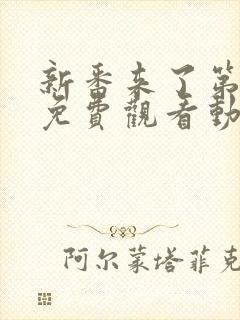 新番来了第
免費觀看動
阿尔蒙塔菲克